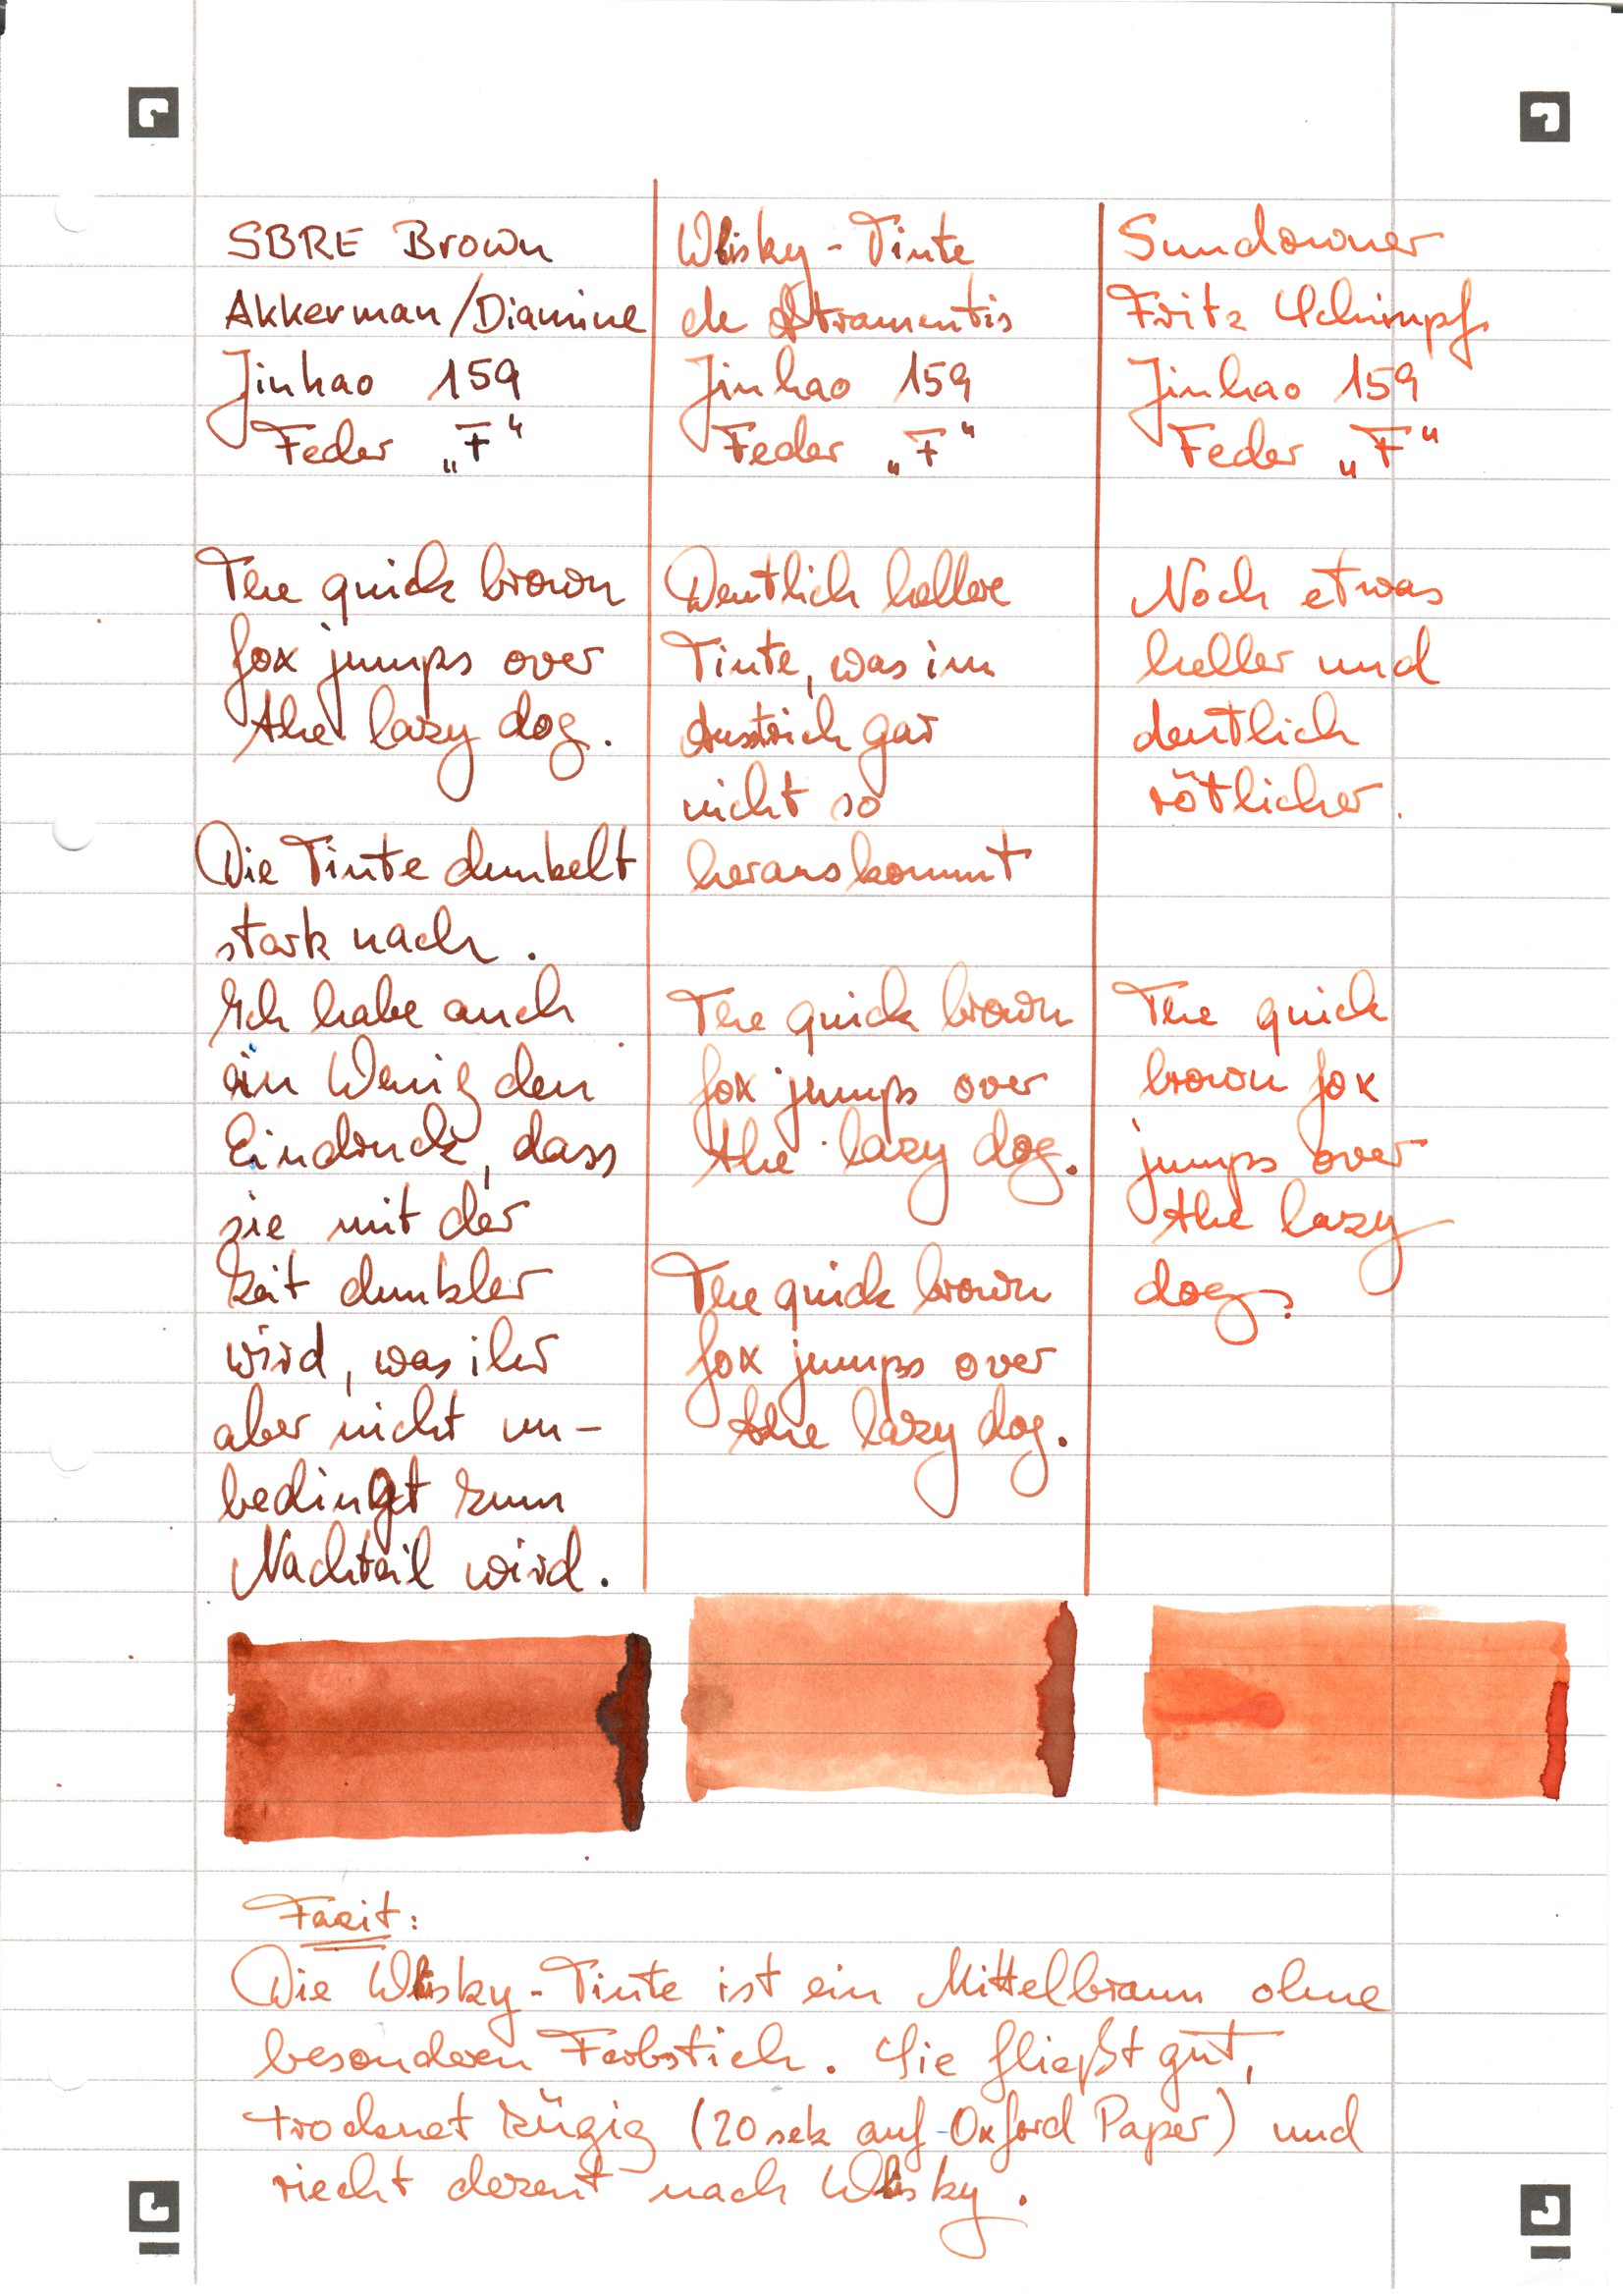 SBRE Brown
Akkerman/Diamine
Jinhao 159
Feder „F“
The quick brown
fox jumps over
the lazy dog.
Die Tinte dunkelt
stark nach.
Ich habe auch
ein Wenig den
Eindruck, dass
sie mit der
Zeit dunkler
wird, was ihr
aber nicht un-
bedingt zum
Nachteil wird.
Whisky-Tinte
de Atramentis
Jinhao 159
Feder „F“
Deutlich hellere
Tinte, was im
Ausstrich gar
nicht so
herauskommt
The quick brown
fox jumps over
the lazy dog.
The quick brown
fox jumps over
the lazy dog.
Sundowner
Fritz Schimpf
Jinhao 159
Feder „F“
Noch etwas
heller und
deutlich
rötlicher.
The quick
brown fox
jumps over
the lazy
dog.
Fazit:
Die Whisky-Tinte ist ein Mittelbraun ohne
besonderen Farbstich. Sie fließt gut,
trocknet zügig (20 sek auf Oxford Paper) und
riecht dezent nach Whisky.